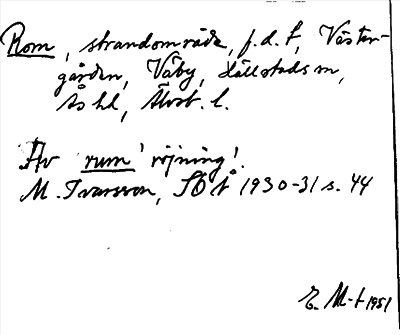 Rom, strandområde, f.d. t, Väster-
gården, Väby, Källstads sn,
Ås hd, Älvsb. l.
Av rum 'röjning'.
M. Ivarsson, SOÅ 1930-31 s. 44
E. M-t 1951